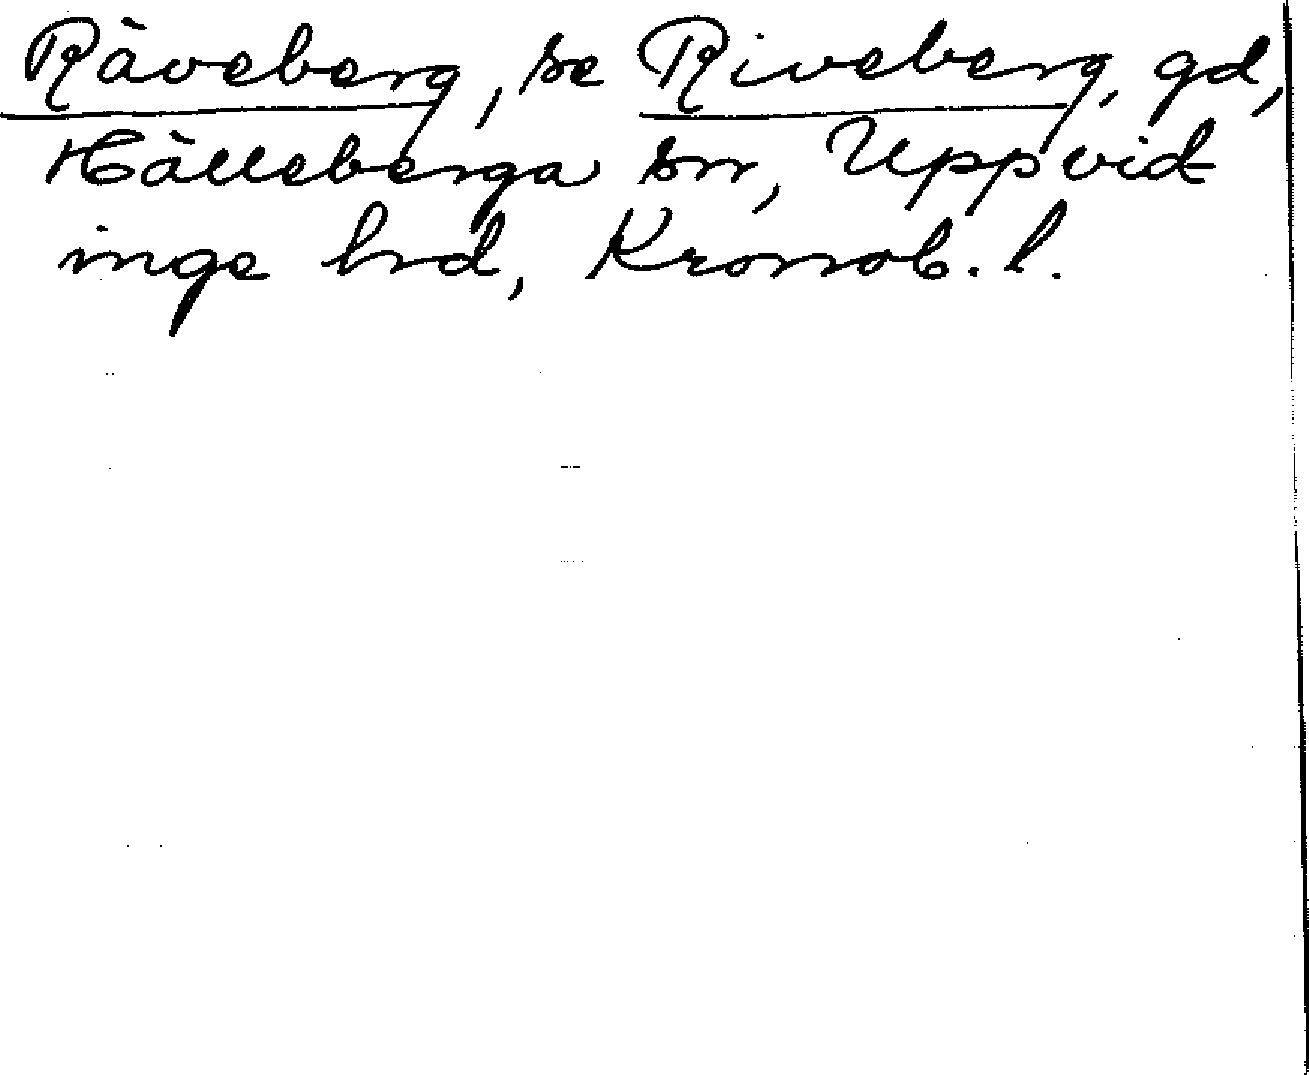 Räveberg, se Riveberg, gd,
Hälleberga sn, Uppvid
inge hrd, Kronob. l.